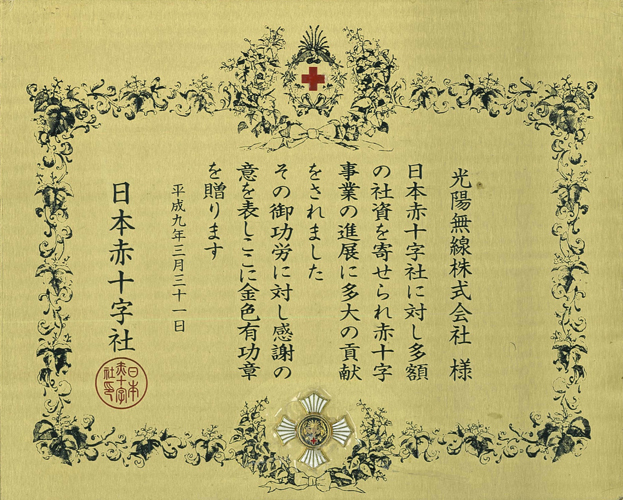 光陽無線株式会社 様
日本赤十字社に対し多額
の社資を寄せられ赤十字
事業の進展に多大の貢献
をされました
その御功労に対し感謝の
意を表しここに金色有功章
を贈ります
平成九年三月三十一日
日本赤十字社
日本
赤十字
社印